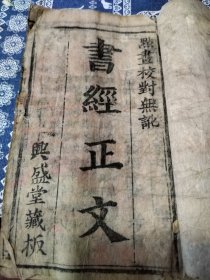 點畫校對無訛
書經正文
興盛堂藏板